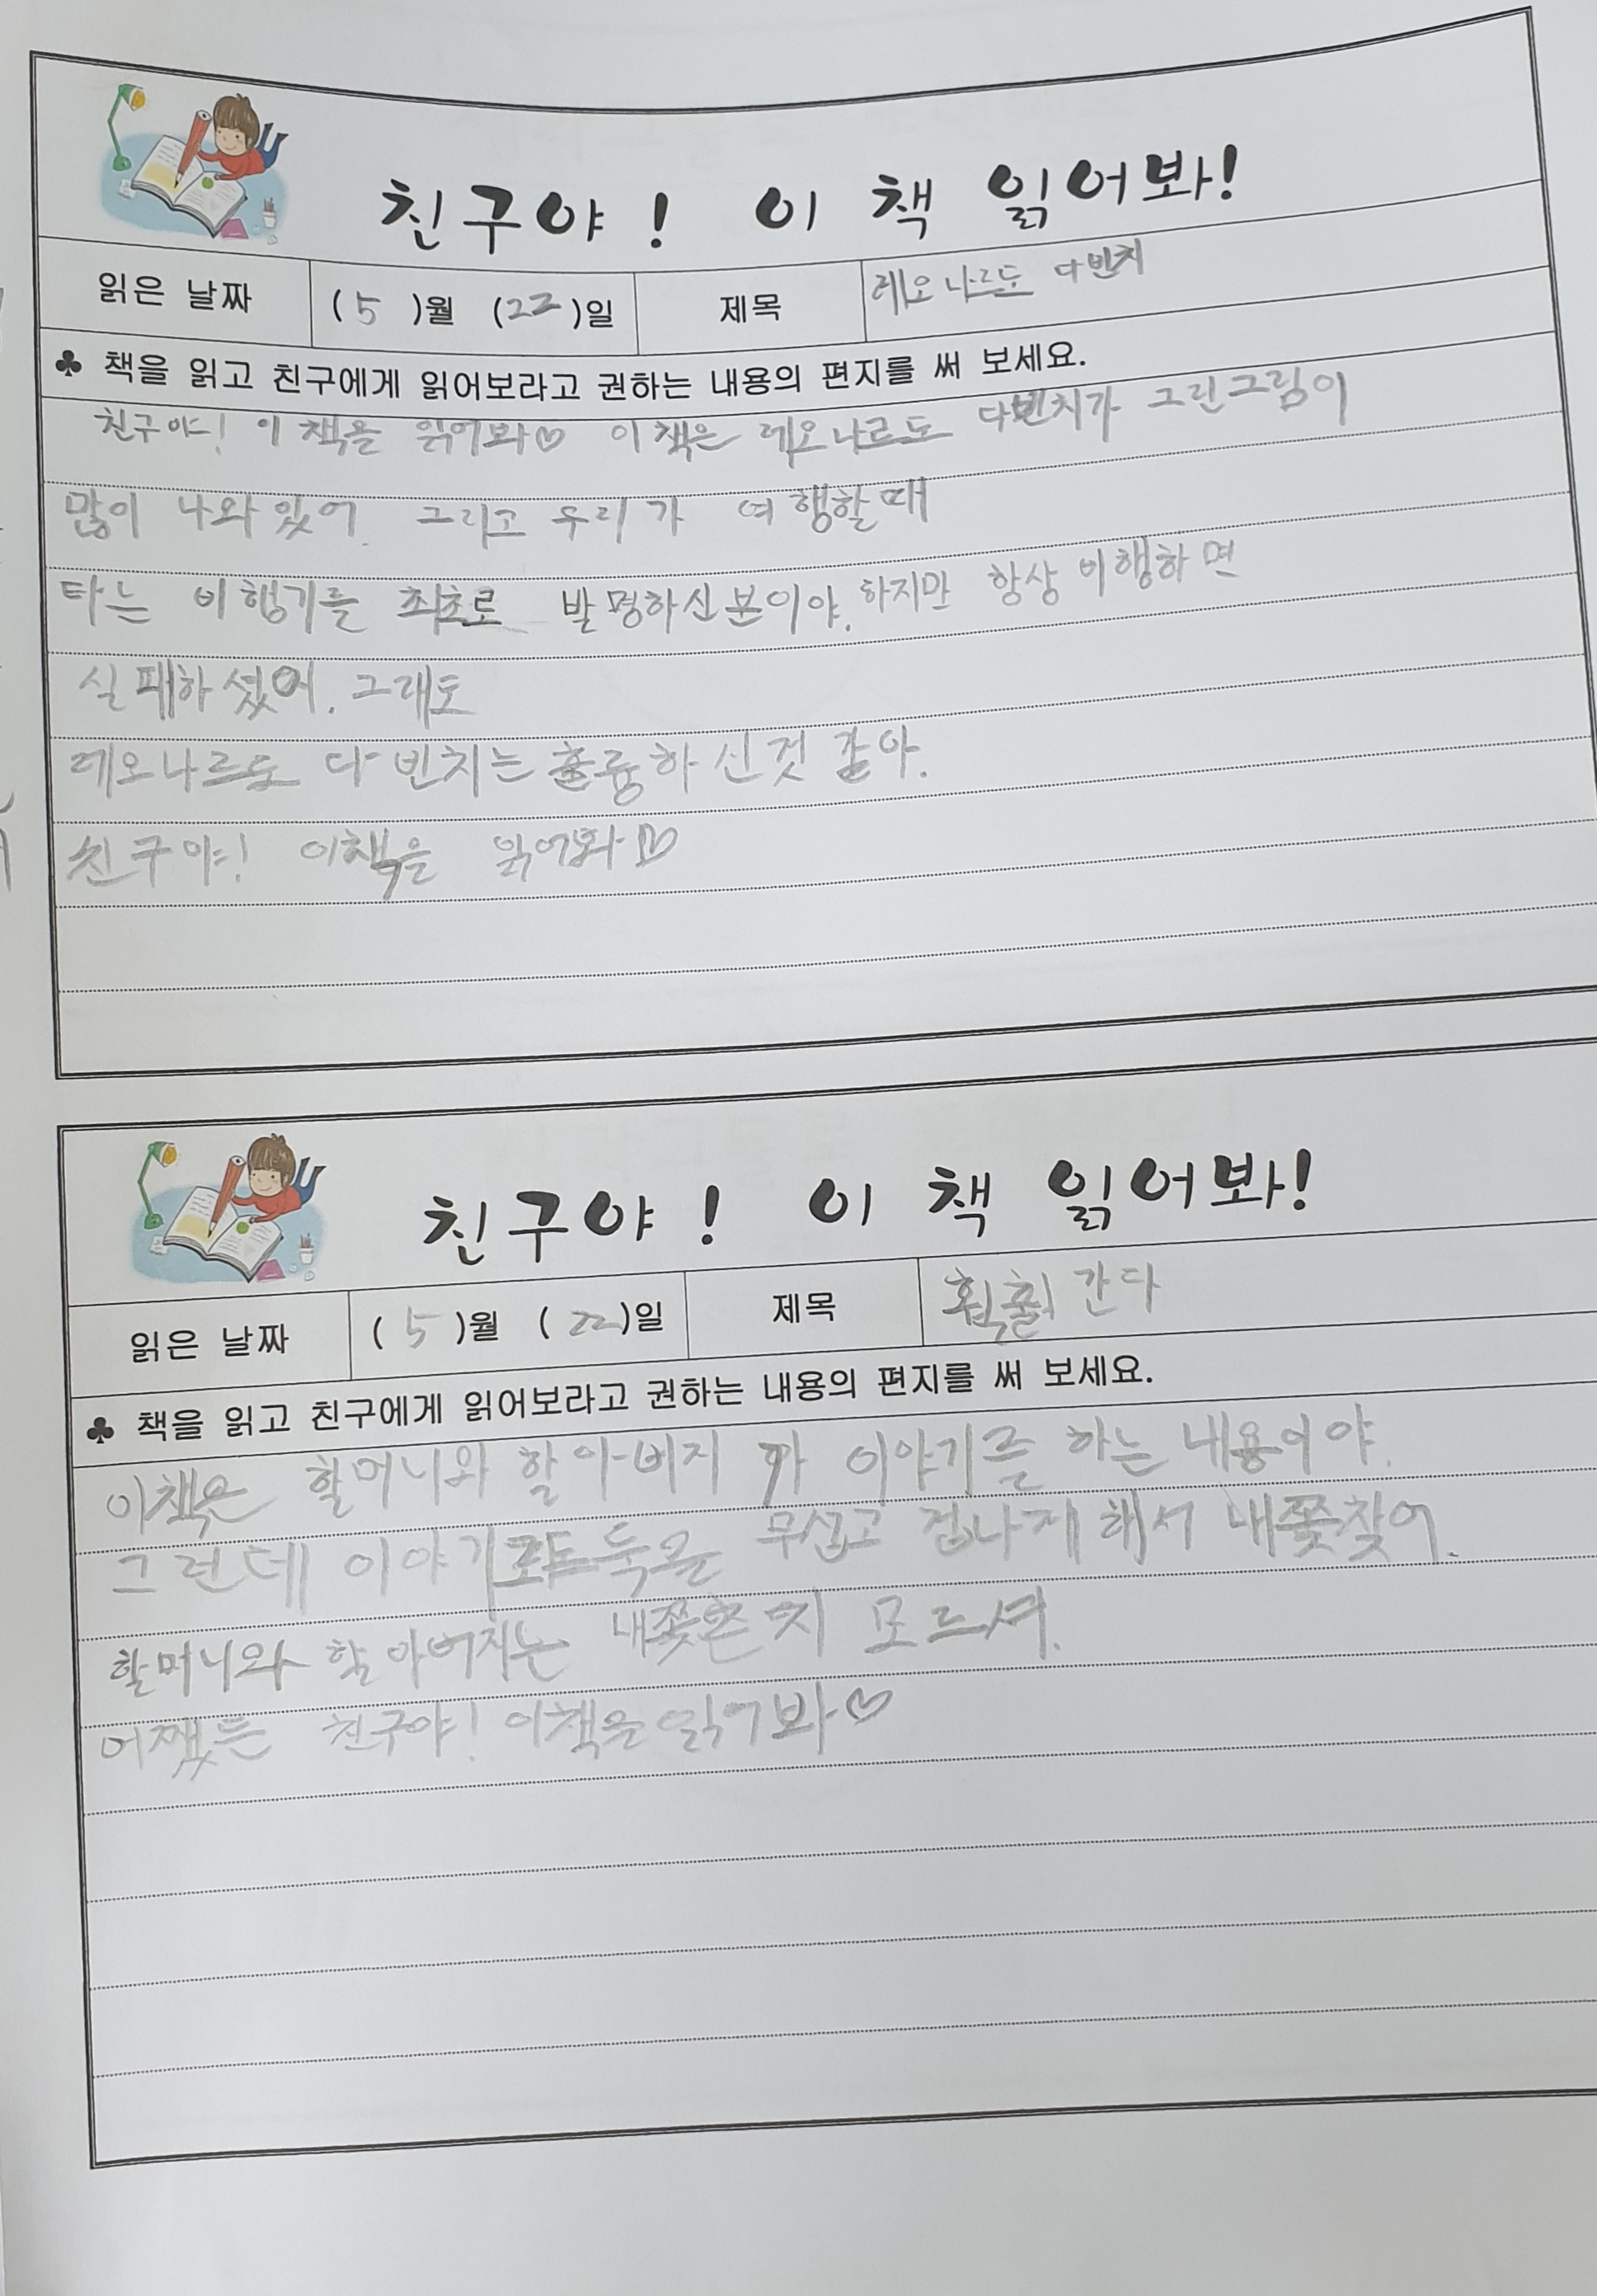 친구야! 이 책 읽어봐!
읽은 날짜 (5)월 (22)일 제목 레오나르도 다빈치
♣ 책을 읽고 친구에게 읽어보라고 권하는 내용의 편지를 써 보세요.
친구야! 이 책을 읽어봐♡ 이 책은 레오나르도 다빈치가 그린그림이
많이 나와있어. 그리고 우리가 여행할때
타는 비행기를 최초로 발명하신분이야. 하지만 항상 비행하면
실패하셨어. 그래도
레오나르도 다빈치는 훌륭하신것 같아.
친구야! 이책은 읽어봐♡
친구야! 이 책 읽어봐!
읽은 날짜 (5)월 (22)일 제목 간다
♣ 책을 읽고 친구에게 읽어보라고 권하는 내용의 편지를 써 보세요.
이책은 할머니와 할아버지가 이야기를 하는 내용이야.
그런데 이야기로 도둑을 무섭고 겁나게 해서 내쫓찾어.
할머니와 할아버지는 내쫓은지 모르셔.
어쨌든 친구야! 이책을 읽어봐♡